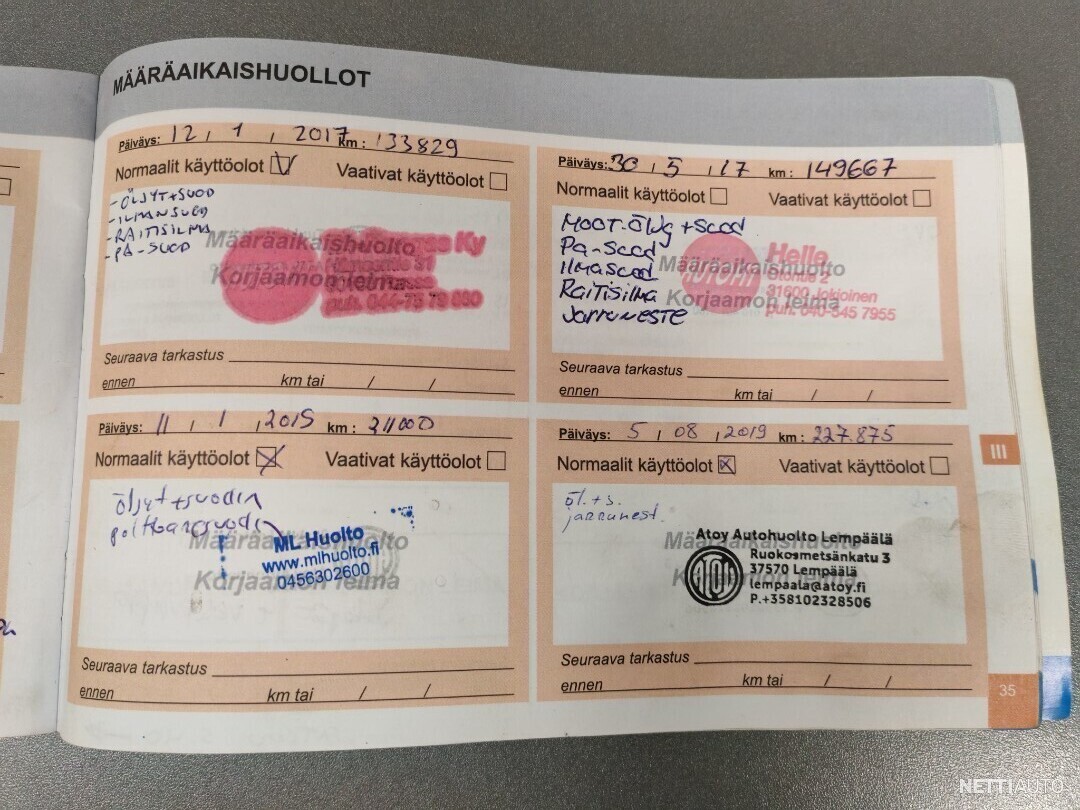 MÄÄRÄAIKAISHUOLLOT
Päiväys: 12 / 1 / 2017 km: 133829
Normaalit käyttöolot Vaativat käyttöolot
- ÖLJYT+SUOD
- ILMANSUOD
- RAITISILMA
- PA-SUOD
Määräaikaishuolto
Korjaamon leima
Ky
Seuraava tarkastus
ennen km tai / /
Päiväys: 30 / 5 / 17 km: 149667
Normaalit käyttöolot Vaativat käyttöolot
MOOT.ÖLJY+SUOD
PA-SUOD
ILMASUOD
RAITISILMA
JARRUNESTE
Määräaikaishuolto
Korjaamon leima
Helle
Otontie 2
31600 Jokioinen
puh. 040-545 7955
Seuraava tarkastus
ennen km tai / /
Päiväys: 11 / 1 / 2019 km: 211000
Normaalit käyttöolot Vaativat käyttöolot
öljyt+suodin
Määräaikaishuolto
Korjaamon leima
ML Huolto
www.mlhuolto.fi
0456302600
Seuraava tarkastus
ennen km tai / /
Päiväys: 5 / 08 / 2019 km: 227.875
Normaalit käyttöolot Vaativat käyttöolot
öl.+s.
jarrunest.
Määräaikaishuolto
Korjaamon leima
Atoy Autohuolto Lempäälä
Ruokosmetsänkatu 3
37570 Lempäälä
lempaala@atoy.fi
P.+358102328506
Seuraava tarkastus
ennen km tai / /
III
35
NETTIAUTO